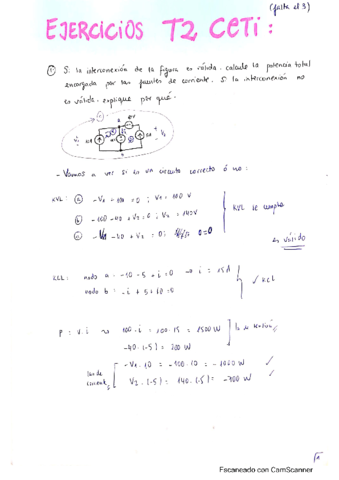 (falta el 3)
EJERCICIOS T2, CETI:
① Si la interconexión de la figura es válida, calcula la potencia total
encargada por las fuentes de corriente. Si la interconexión no
es válida, explique por qué.
- Vamos a ver si es un circuito correcto ó no:
KVL: ⓐ -V₁ - 100 = 0 ; V₁ = 100 V
ⓑ -100 - 40 + V₂ = 0 ; V₂ = 140V
ⓒ -V₁ - 40 + V₂ = 0 ; 0 = 0
KVL se cumple
es válido
KCL: nodo a = -10 - 5 + i = 0 → i = 15A
nodo b = -i + 5 + 10 = 0
✓ KCL
P = V · i → 100 · i = 100 · 15 = 1500 W
-40 · (-5) = 200 W
-V₁ · 10 = -100 · 10 = -1000 W ✓
V₂ · (-5) = 140 · (-5) = -700 W ✓
Escaneado con CamScanner